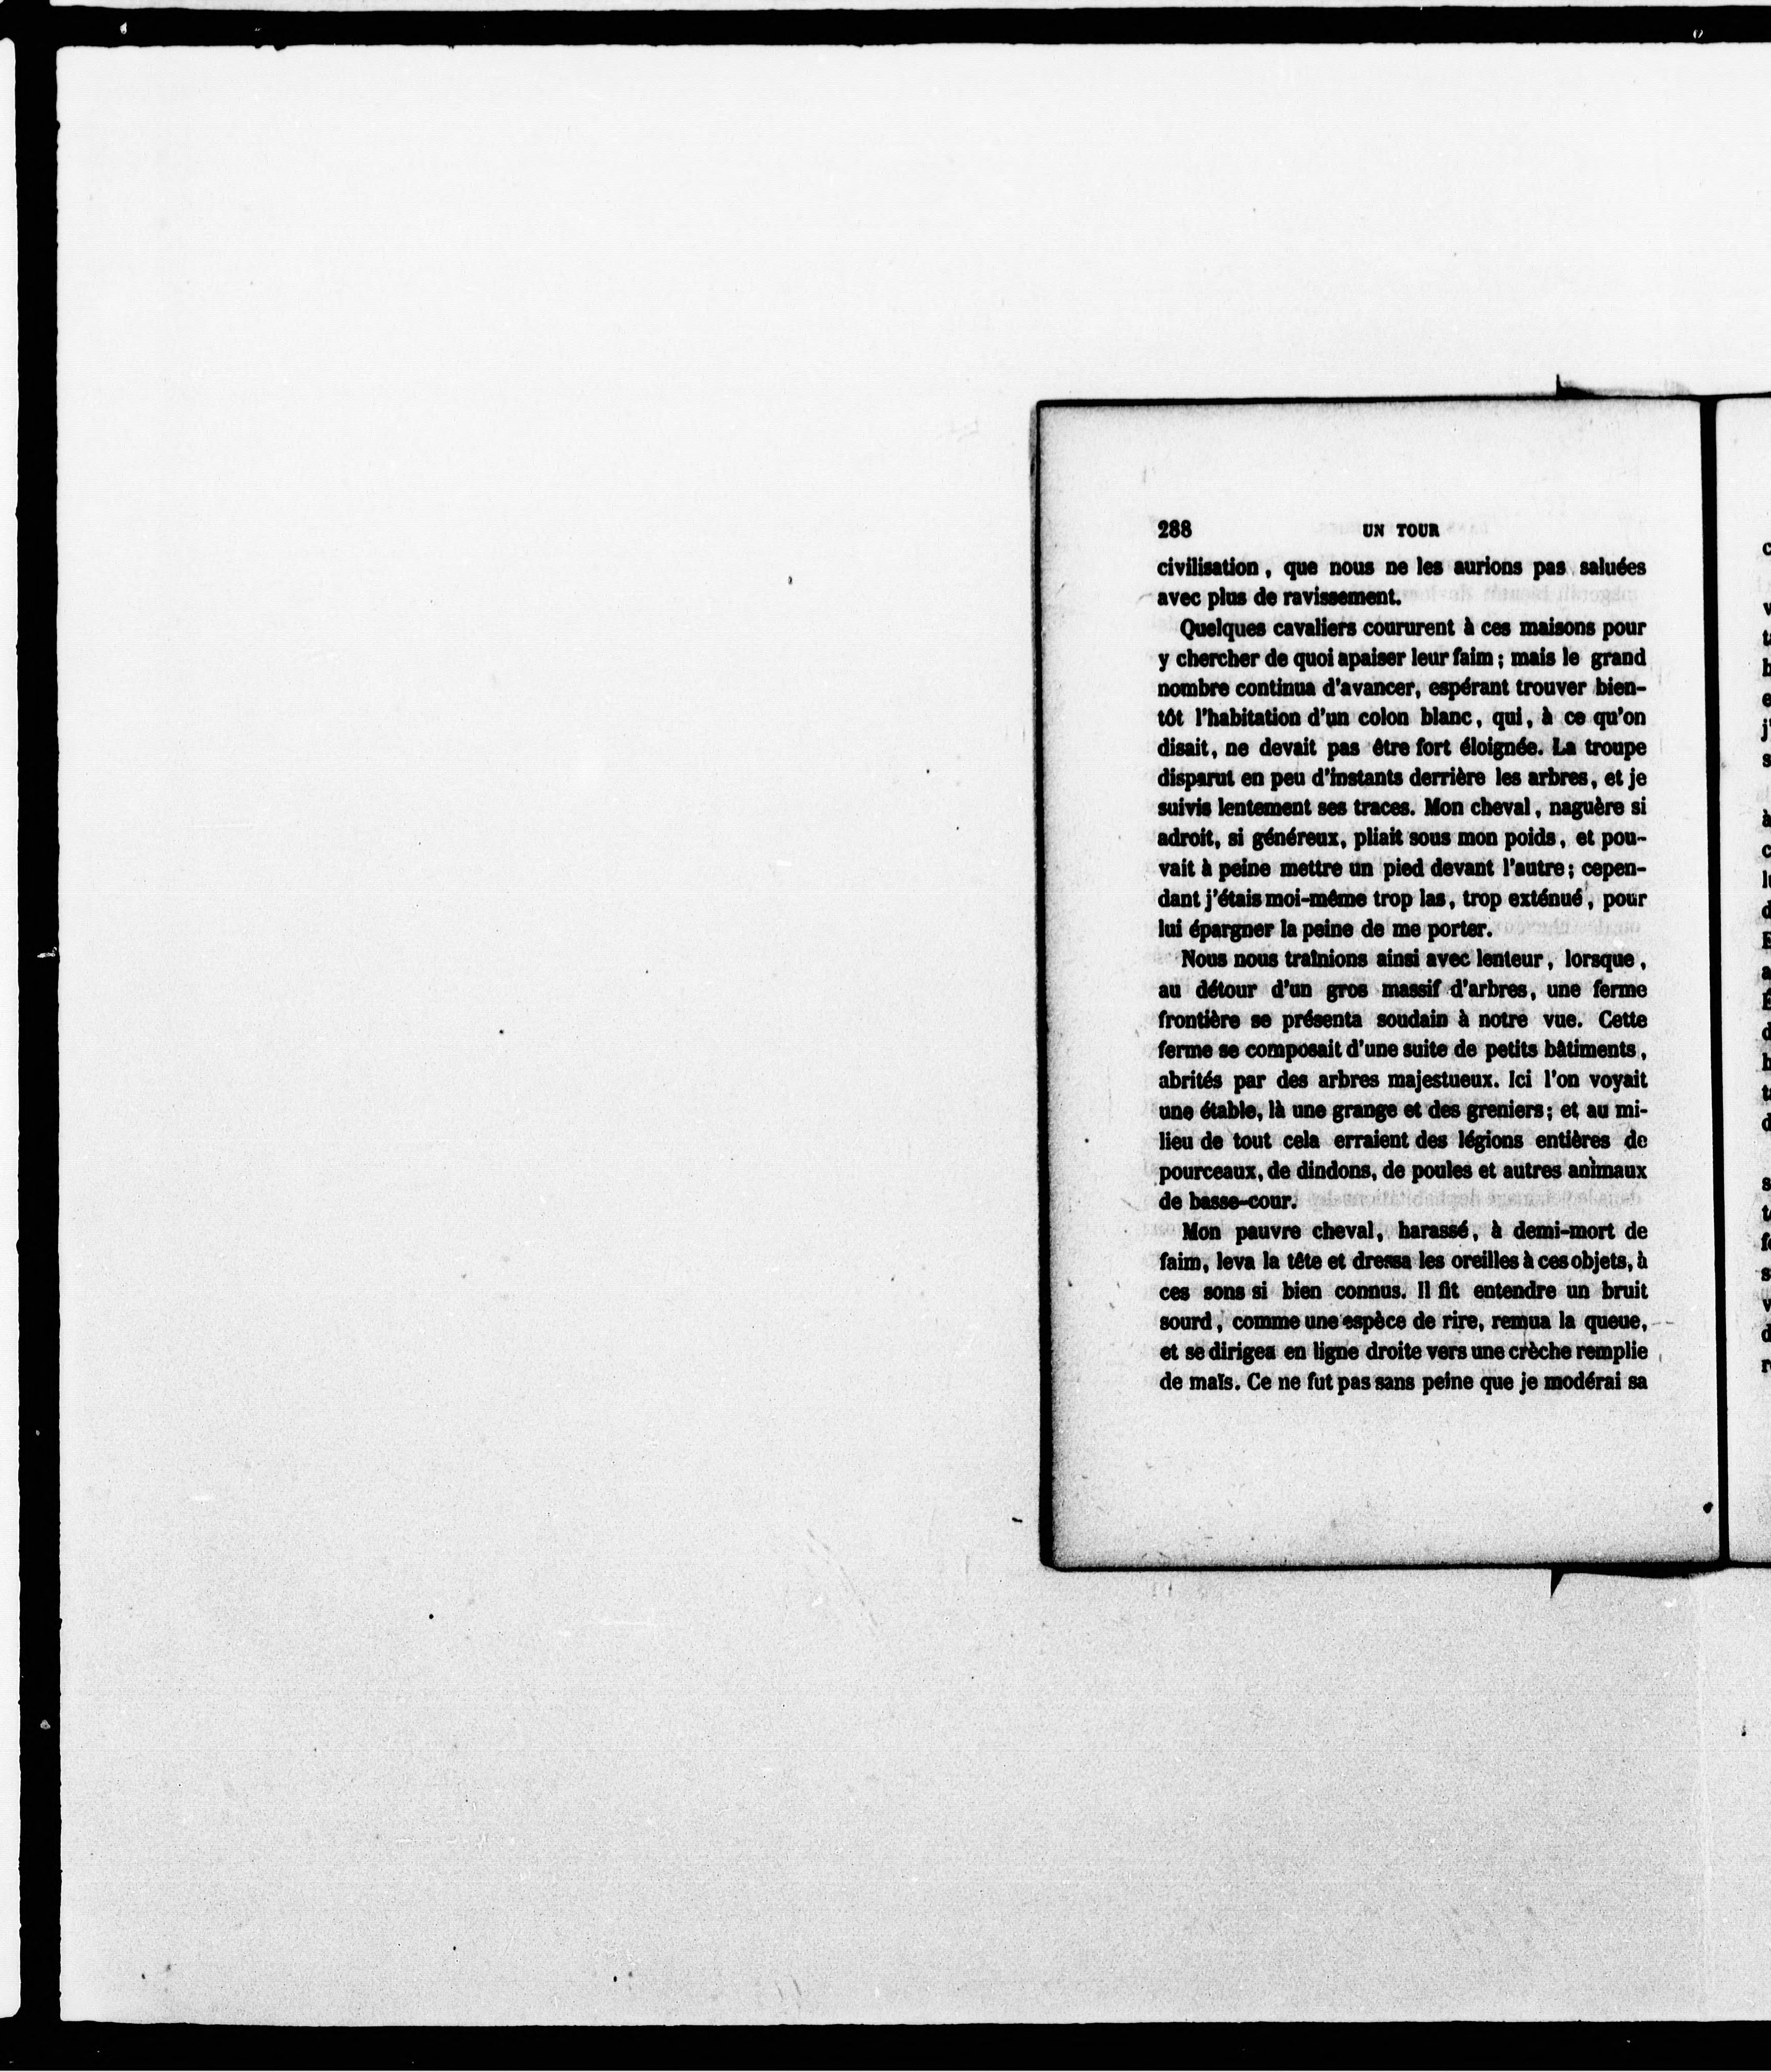 288 UN TOUR
civilisation, que nous ne les aurions pas saluées
avec plus de ravissement.
Quelques cavaliers coururent à ces maisons pour
y chercher de quoi apaiser leur faim ; mais le grand
nombre continua d'avancer, espérant trouver bien-
tôt l'habitation d'un colon blanc, qui, à ce qu'on
disait, ne devait pas être fort éloignée. La troupe
disparut en peu d'instants derrière les arbres, et je
suivis lentement ses traces. Mon cheval, naguère si
adroit, si généreux, pliait sous mon poids, et pou-
vait à peine mettre un pied devant l'autre ; cepen-
dant j'étais moi-même trop las, trop exténué, pour
lui épargner la peine de me porter.
Nous nous traînions ainsi avec lenteur, lorsque,
au détour d'un gros massif d'arbres, une ferme
frontière se présenta soudain à notre vue. Cette
ferme se composait d'une suite de petits bâtiments,
abrités par des arbres majestueux. Ici l'on voyait
une étable, là une grange et des greniers ; et au mi-
lieu de tout cela erraient des légions entières de
pourceaux, de dindons, de poules et autres animaux
de basse-cour.
Mon pauvre cheval, harassé, à demi-mort de
faim, leva la tête et dressa les oreilles à ces objets, à
ces sons si bien connus. Il fit entendre un bruit
sourd, comme une espèce de rire, remua la queue,
et se dirigea en ligne droite vers une crèche remplie
de maïs. Ce ne fut pas sans peine que je modérai sa